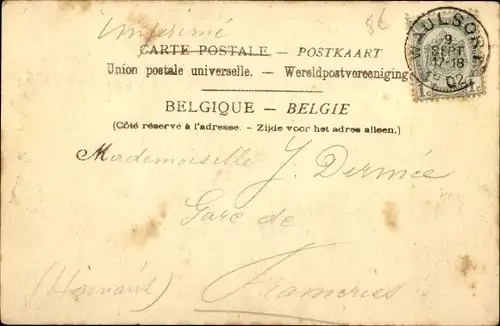 Imprimé
CARTE POSTALE — POSTKAART
Union postale universelle. — Wereldpostvereeniging
BELGIQUE — BELGIE
(Côté réservé à l'adresse. - Zijde voor het adres alleen.)
Mademoiselle J. Dermée
Gare de
(Hainaut) Frameries
WAULSORT
9
SEPT
17-18
1902
1 c